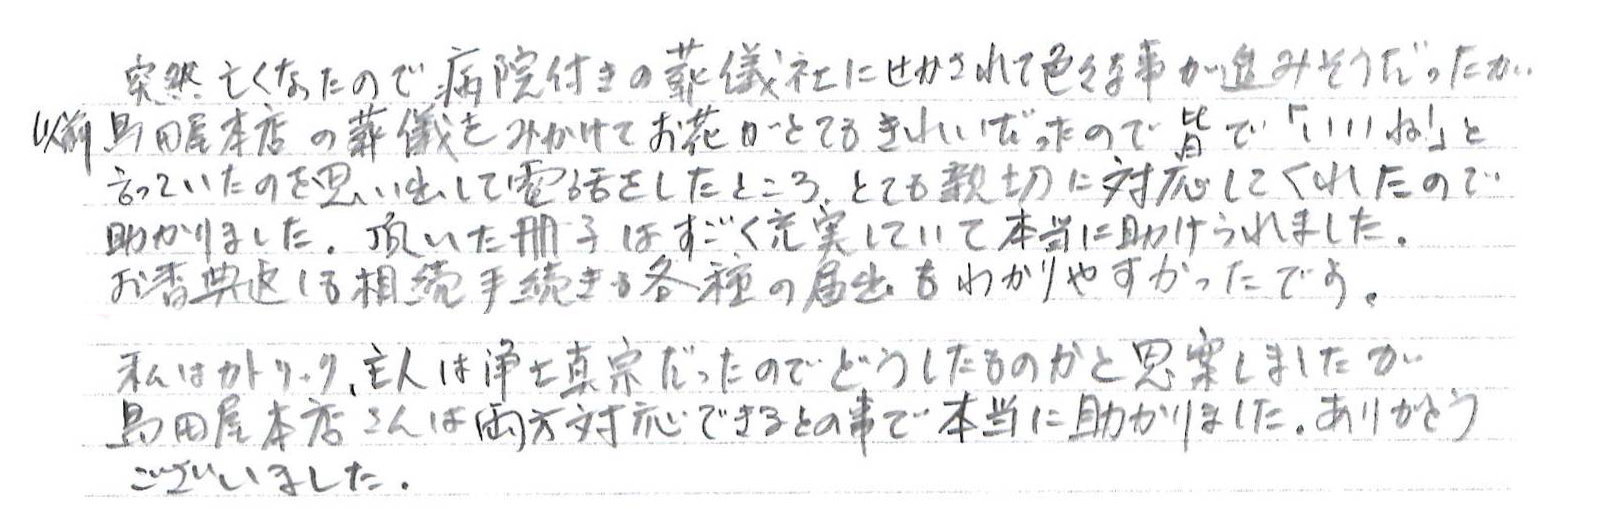 突然亡くなったので病院付きの葬儀社にせかされて色々な事が進みそうだったが
以前鳥田屋本店の葬儀をみかけてお花がとてもきれいだったので皆で「いいね!」と
言っていたのを思い出して電話をしたところ、とても親切に対応してくれたので
助かりました。頂いた冊子はすごく充実していて本当に助けられました。
お香典返しも相続手続きも各種の届出もわかりやすかったです。
私はカトリック、主人は浄土真宗だったのでどうしたものかと思案しましたが
鳥田屋本店さんは両方対応できるとの事で本当に助かりました。ありがとう
ございいました。